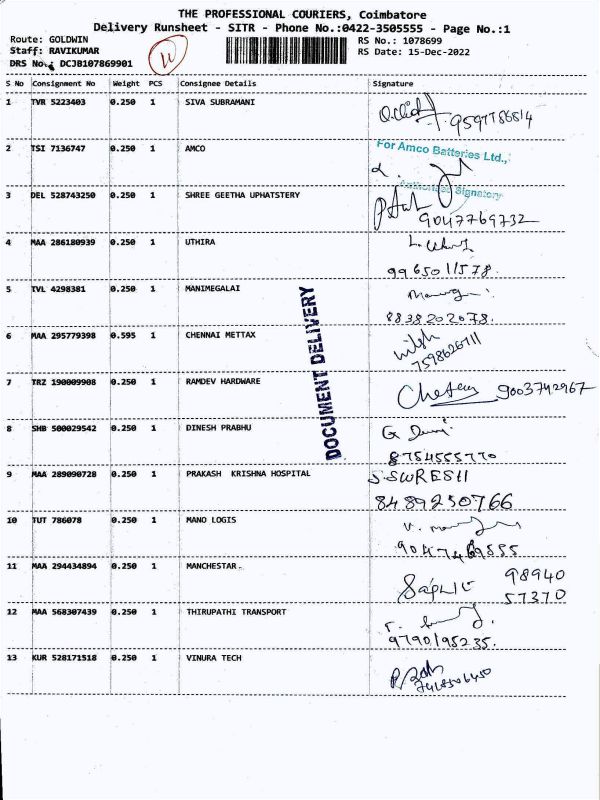 THE PROFESSIONAL COURIERS, Coimbatore
Delivery Runsheet - SITR - Phone No.:0422-3505555 - Page No.:1
Route: GOLDWIN
Staff: RAVIKUMAR
DRS No.: DCJB107869901
RS No.: 1078699
RS Date: 15-Dec-2022
S No Consignment No Weight PCS Consignee Details Signature
1 TVR 5223403 0.250 1 SIVA SUBRAMANI
2 TSI 7136747 0.250 1 AMCO For Amco Batteries Ltd.,
Authorised Signatory
3 DEL 528743250 0.250 1 SHREE GEETHA UPHATSTERY
9047769732
4 MAA 286180939 0.250 1 UTHIRA
9965011578.
5 TVL 4298381 0.250 1 MANIMEGALAI
8838202078.
6 MAA 295779398 0.595 1 CHENNAI METTAX
7598626711
7 TRZ 190009908 0.250 1 RAMDEV HARDWARE 9003742967
8 SHB 500029542 0.250 1 DINESH PRABHU
8754555770
9 MAA 289090728 0.250 1 PRAKASH KRISHNA HOSPITAL S.SURESH
8489250766
10 TUT 786078 0.250 1 MANO LOGIS
11 MAA 294434894 0.250 1 MANCHESTAR. 98940
57370
12 MAA 568307439 0.250 1 THIRUPATHI TRANSPORT
9790195235.
13 KUR 528171518 0.250 1 VINURA TECH
DOCUMENT DELIVERY